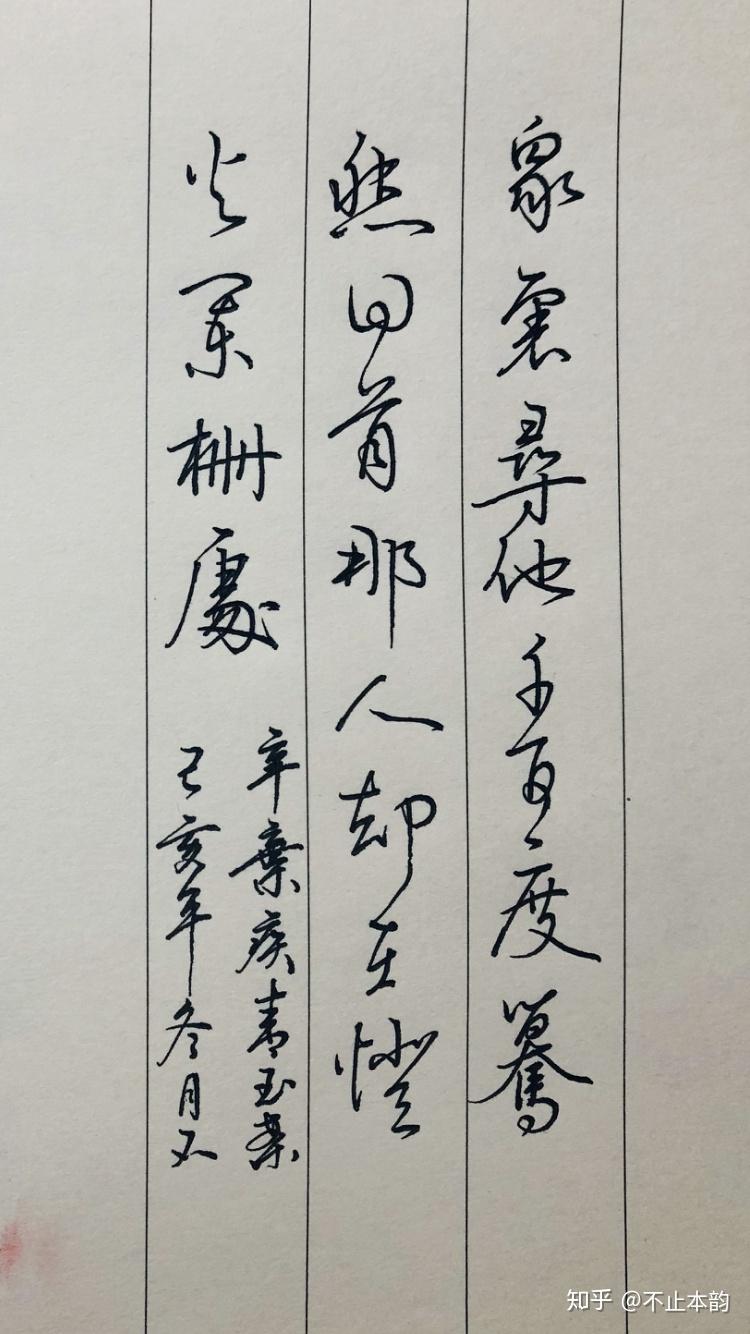 眾裏尋他千百度驀
然回首那人却在燈
火闌珊處
辛棄疾青玉案
己亥年冬月不
知乎 @不止本韵